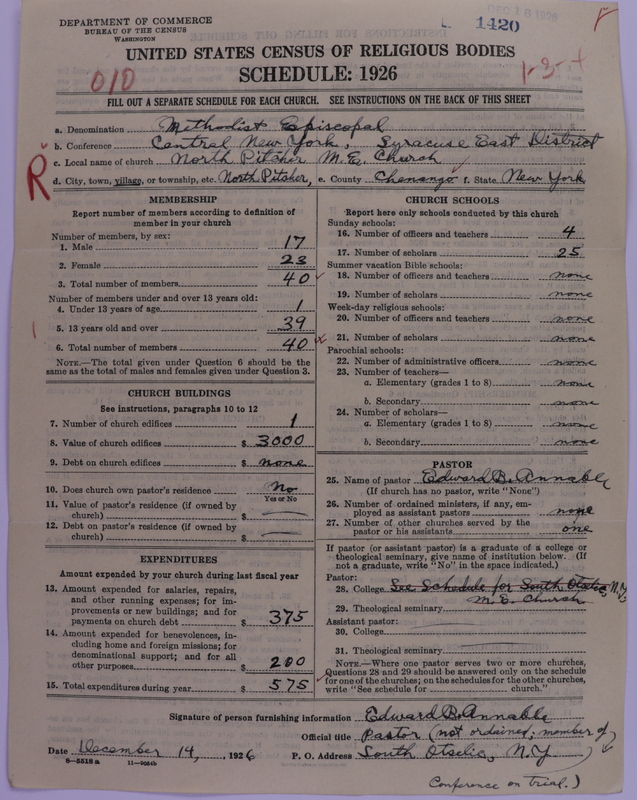 DEPARTMENT OF COMMERCE
BUREAU OF THE CENSUS
WASHINGTON
DEC 16 1926
1420
UNITED STATES CENSUS OF RELIGIOUS BODIES
SCHEDULE: 1926
010
FILL OUT A SEPARATE SCHEDULE FOR EACH CHURCH. SEE INSTRUCTIONS ON THE BACK OF THIS SHEET
R
a. Denomination Methodist Episcopal
b. Conference Central New York, Syracuse East District
c. Local name of church North Pitcher M.E. Church
d. City, town, village, or township, etc. North Pitcher, e. County Chenango f. State New York
MEMBERSHIP
Report number of members according to definition of
member in your church
Number of members, by sex:
1. Male 17
2. Female 23
3. Total number of members 40
Number of members under and over 13 years old:
4. Under 13 years of age 1
5. 13 years old and over 39
6. Total number of members 40
NOTE.—The total given under Question 6 should be the
same as the total of males and females given under Question 3.
CHURCH BUILDINGS
See instructions, paragraphs 10 to 12
7. Number of church edifices 1
8. Value of church edifices $ 3000
9. Debt on church edifices $ none
10. Does church own pastor's residence? No
Yes or No
11. Value of pastor's residence (if owned by
church) $
12. Debt on pastor's residence (if owned by
church) $
EXPENDITURES
Amount expended by your church during last fiscal year
13. Amount expended for salaries, repairs,
and other running expenses; for im-
provements or new buildings; and for
payments on church debt $ 375
14. Amount expended for benevolences, in-
cluding home and foreign missions; for
denominational support; and for all
other purposes $ 200
15. Total expenditures during year $ 575
CHURCH SCHOOLS
Report here only schools conducted by this church
Sunday schools:
16. Number of officers and teachers 4
17. Number of scholars 25
Summer vacation Bible schools:
18. Number of officers and teachers none
19. Number of scholars none
Week-day religious schools:
20. Number of officers and teachers none
21. Number of scholars none
Parochial schools:
22. Number of administrative officers none
23. Number of teachers—
a. Elementary (grades 1 to 8) none
b. Secondary none
24. Number of scholars—
a. Elementary (grades 1 to 8) none
b. Secondary none
PASTOR
25. Name of pastor Edward B. Annable
(If church has no pastor, write "None")
26. Number of ordained ministers, if any, em-
ployed as assistant pastors none
27. Number of other churches served by the
pastor or his assistants one
If pastor (or assistant pastor) is a graduate of a college or
theological seminary, give name of institution below. (If
not a graduate, write "No" in the space indicated.)
Pastor:
28. College See Schedule for South Otselic N.Y.
M.E. Church
29. Theological seminary
Assistant pastor:
30. College
31. Theological seminary
NOTE.—Where one pastor serves two or more churches,
Questions 28 and 29 should be answered only on the schedule
for one of the churches; on the schedules for the other churches,
write "See schedule for church."
Signature of person furnishing information Edward B. Annable
Official title Pastor (not ordained; member of
Date December 14, 1926 P. O. Address South Otselic, N.Y.
8—5518 a
Conference on trial.)